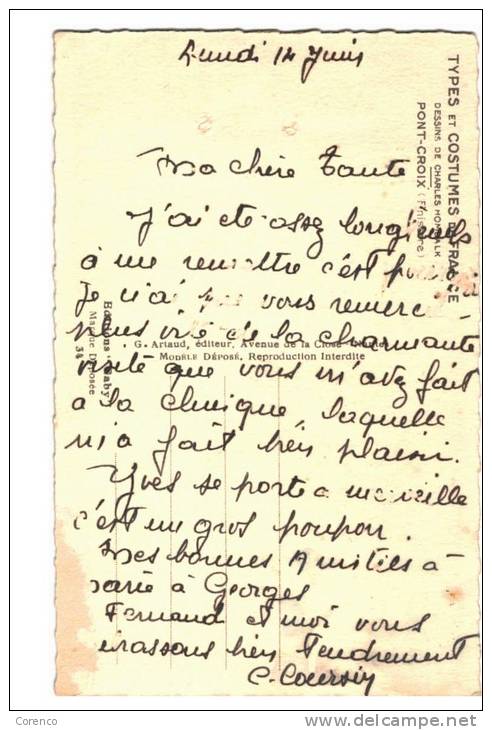 Lundi 14 Juin
Ma chère Tante
J'ai été assez longtemps
à me remettre c'est pourquoi
Je n'ai pas vous remerc
plus vite de la charmante
visite que vous m'avez fait
a la clinique, laquelle
m'a fait bien plaisir.
Yves se porte a merveille
c'est un gros poupon.
Mes bonnes Amitiés à
Marie à Georges
Fernand et moi vous
embrassons bien tendrement
C. Coursin
TYPES ET COSTUMES DE FRANCE
DESSINS DE CHARLES HOMUALK
PONT-CROIX (Finistère)
G. Artaud, éditeur, Avenue de la Close
MODÈLE DÉPOSÉ, Reproduction Interdite
Editions "Gaby"
Marque Déposée
34
Corenco
http://www.delcampe.net